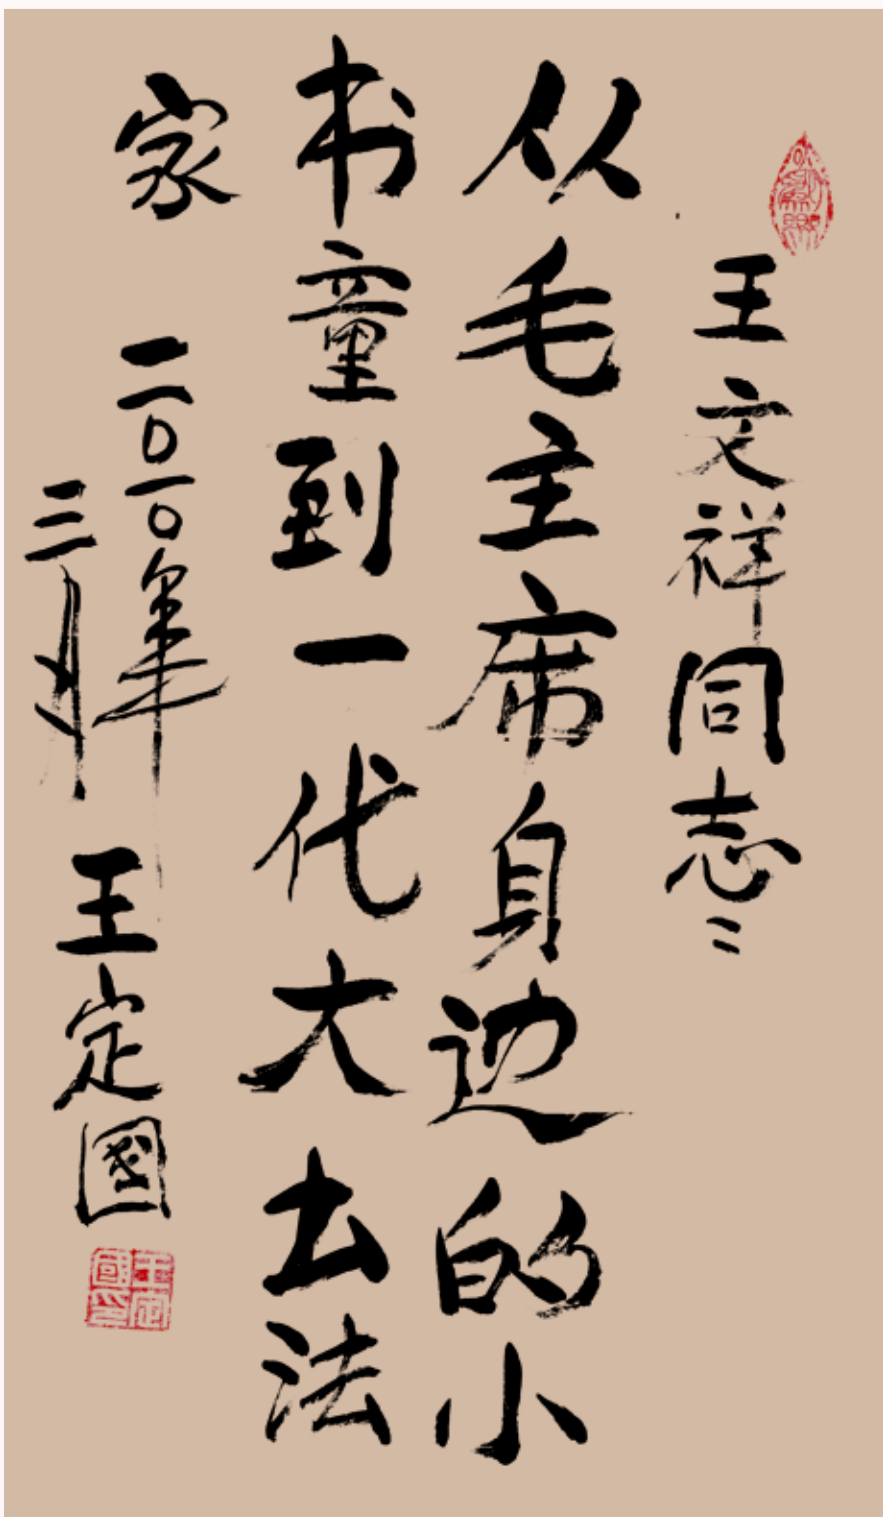 王文祥同志:
从毛主席身边的小
书童到一代大书法
家
二〇一〇年
三月
王定國
王定國印